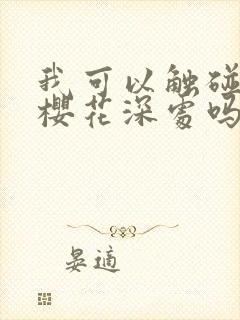 我可以触碰
樱花深处吗
晏適